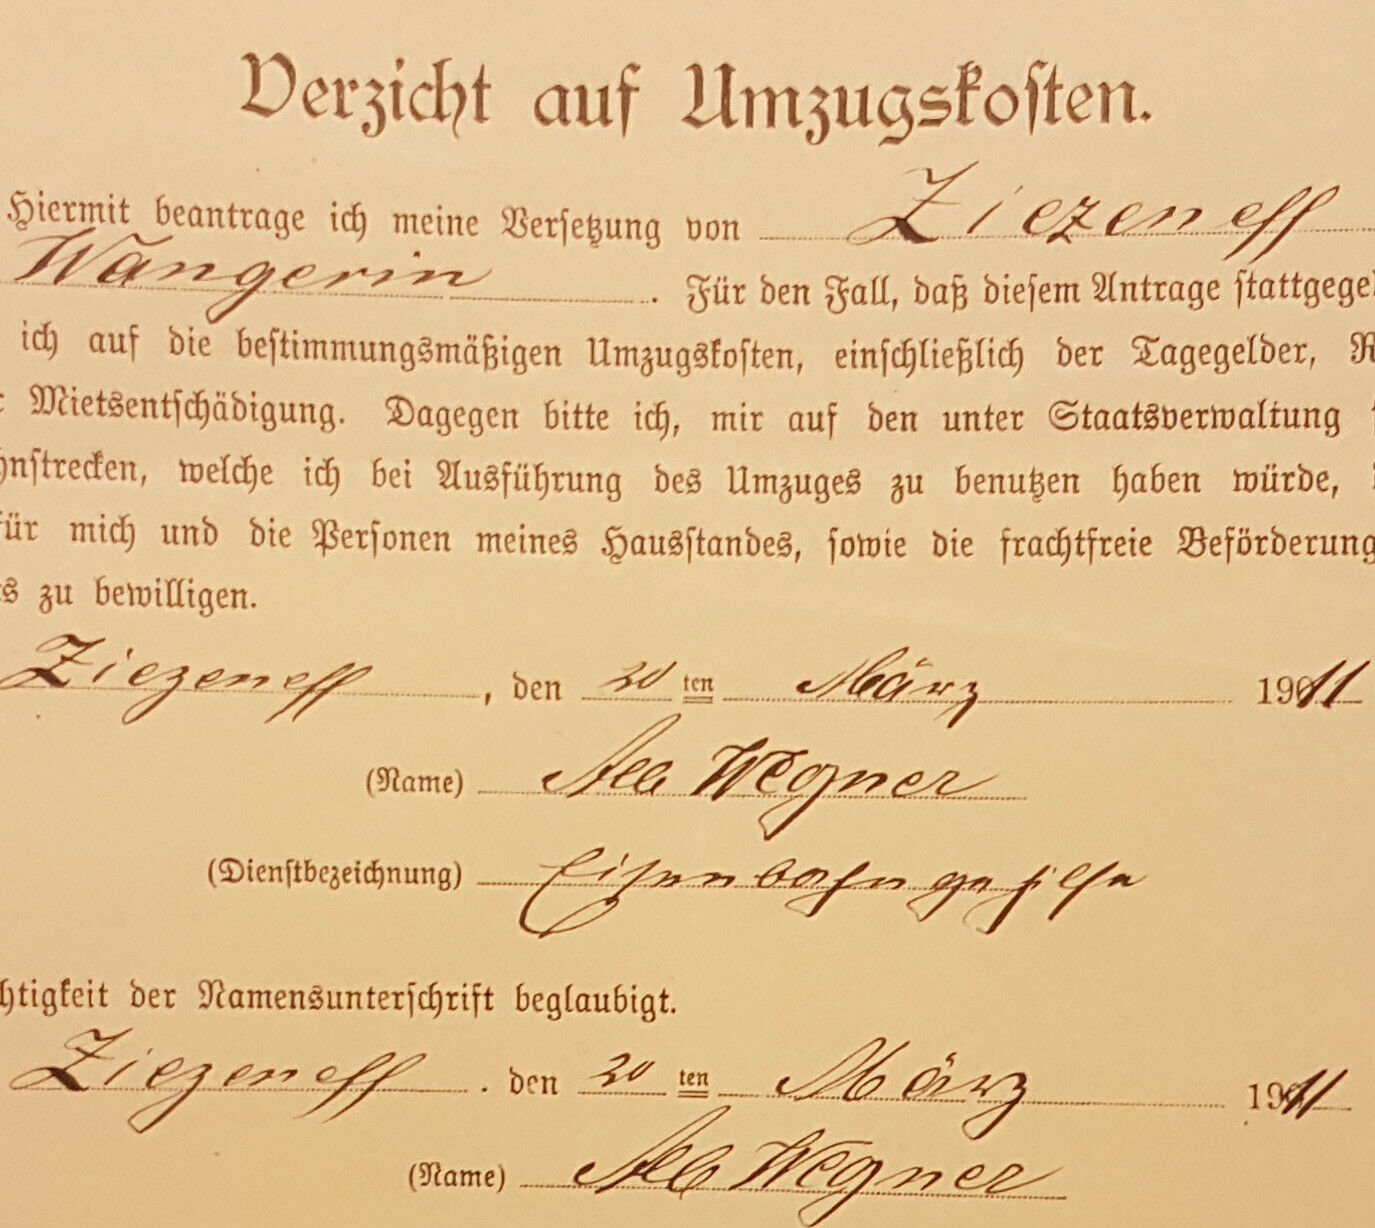 Verzicht auf Umzugskosten.
Hiermit beantrage ich meine Versetzung von Ziezeneff
Wangerin . Für den Fall, daß diesem Antrage stattgege
ich auf die bestimmungsmäßigen Umzugskosten, einschließlich der Tagegelder, R
Mietsentschädigung. Dagegen bitte ich, mir auf den unter Staatsverwaltung
hnstrecken, welche ich bei Ausführung des Umzuges zu benutzen haben würde,
für mich und die Personen meines Hausstandes, sowie die frachtfreie Beförderung
s zu bewilligen.
Ziezeneff , den 20 ten März 1911
(Name) Alb Wegner
(Dienstbezeichnung) Eisenbahngehilfe
htigkeit der Namensunterschrift beglaubigt.
Ziezeneff . den 20 ten März 1911
(Name) Alb Wegner